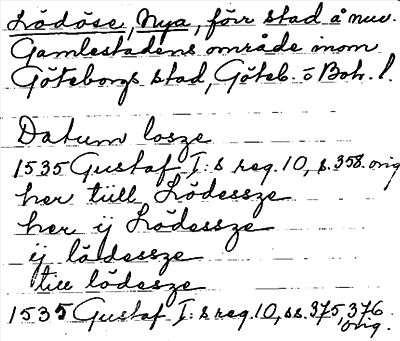 Lödöse, Nya, förr stad å nuv.
Gamlestadens område inom
Göteborgs stad, Göteb. o Boh. l.
Datum losze
1535 Gustaf I:s reg. 10, s. 358. orig
her tiill Lödessze
her ij Lödessze
ij lödessze
till lödesze
1535 Gustaf I:s reg. 10, ss. 375, 376.
orig.